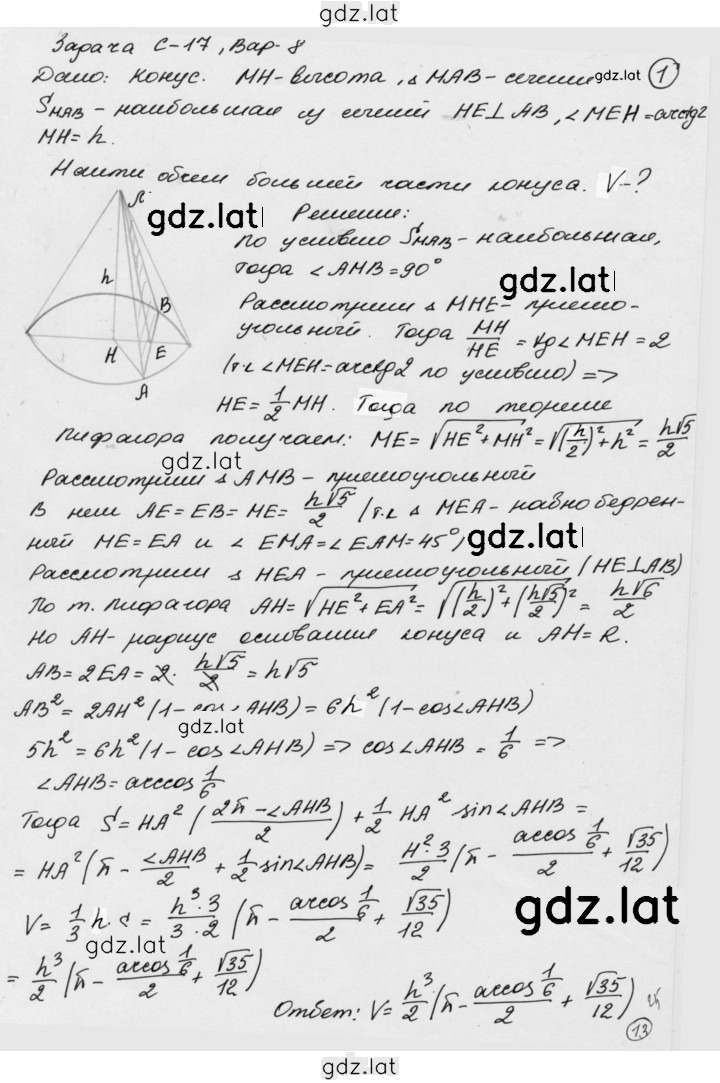 gdz.lat
Задача С-17, Вар-8
Дано: конус. MH-высота, △MAB-сечение gdz.lat 1
S_MAB - наибольшая из сечений HE⊥AB, ∠MEH=arctg2
MH=h.
Найти объем большей части конуса. V-?
Решение:
gdz.lat
По условию S_MAB-наибольшая,
тогда ∠AMB=90°
gdz.lat
Рассмотрим △MHE-прямо-
угольный. Тогда MH/HE = tg∠MEH=2
(т.к ∠MEH=arctg2 по условию) =>
HE=1/2 MH. Тогда по теореме
h
B
H
E
A
Пифагора получаем: ME=√(HE²+MH²)=√((h/2)²+h²)=h√5/2
gdz.lat
Рассмотрим △AMB-прямоугольный
В нем AE=EB=ME=h√5/2 (т.к △MEA-равнобедрен-
ный ME=EA и ∠EMA=∠EAM=45°)
gdz.lat
Рассмотрим △HEA-прямоугольный (HE⊥AB)
По т. Пифагора AH=√(HE²+EA²)=√((h/2)²+(h√5/2)²=h√6/2
Но AH-радиус основания конуса и AH=R.
AB=2EA=2·h√5/2=h√5
AB²=2AH²(1-cos∠AHB)=6h²(1-cos∠AHB)
gdz.lat
5h²=6h²(1-cos∠AHB) => cos∠AHB=1/6 =>
∠AHB=arccos 1/6
Тогда S=HA²((2π-∠AHB)/2)+1/2 HA² sin∠AHB=
=HA²(π-∠AHB/2+1/2 sin∠AHB)=H²·3/2(π-arccos 1/6/2+√35/12)
V=1/3 h·S=h³·3/3·2(π-arccos 1/6/2+√35/12)
gdz.lat
gdz.lat
=h³/2(π-arccos 1/6/2+√35/12)
Ответ: V=h³/2(π-arccos 1/6/2+√35/12)
13
gdz.lat